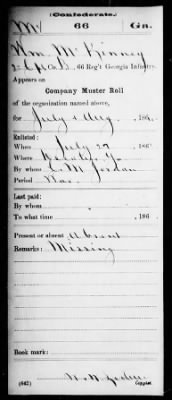 (Confederate.)
M 66 Ga.
Wm McKinney
Co. , 66 Reg't Georgia Infantry.
Appears on
Company Muster Roll
of the organization named above,
for July & Aug, 186
Enlisted:
When July 29, 186
Where Decatur, Ga
By whom C. M. Jordan
Period War
Last paid:
By whom
To what time , 186
Present or absent Absent
Remarks: Missing
Book mark:
(642) Copyist.